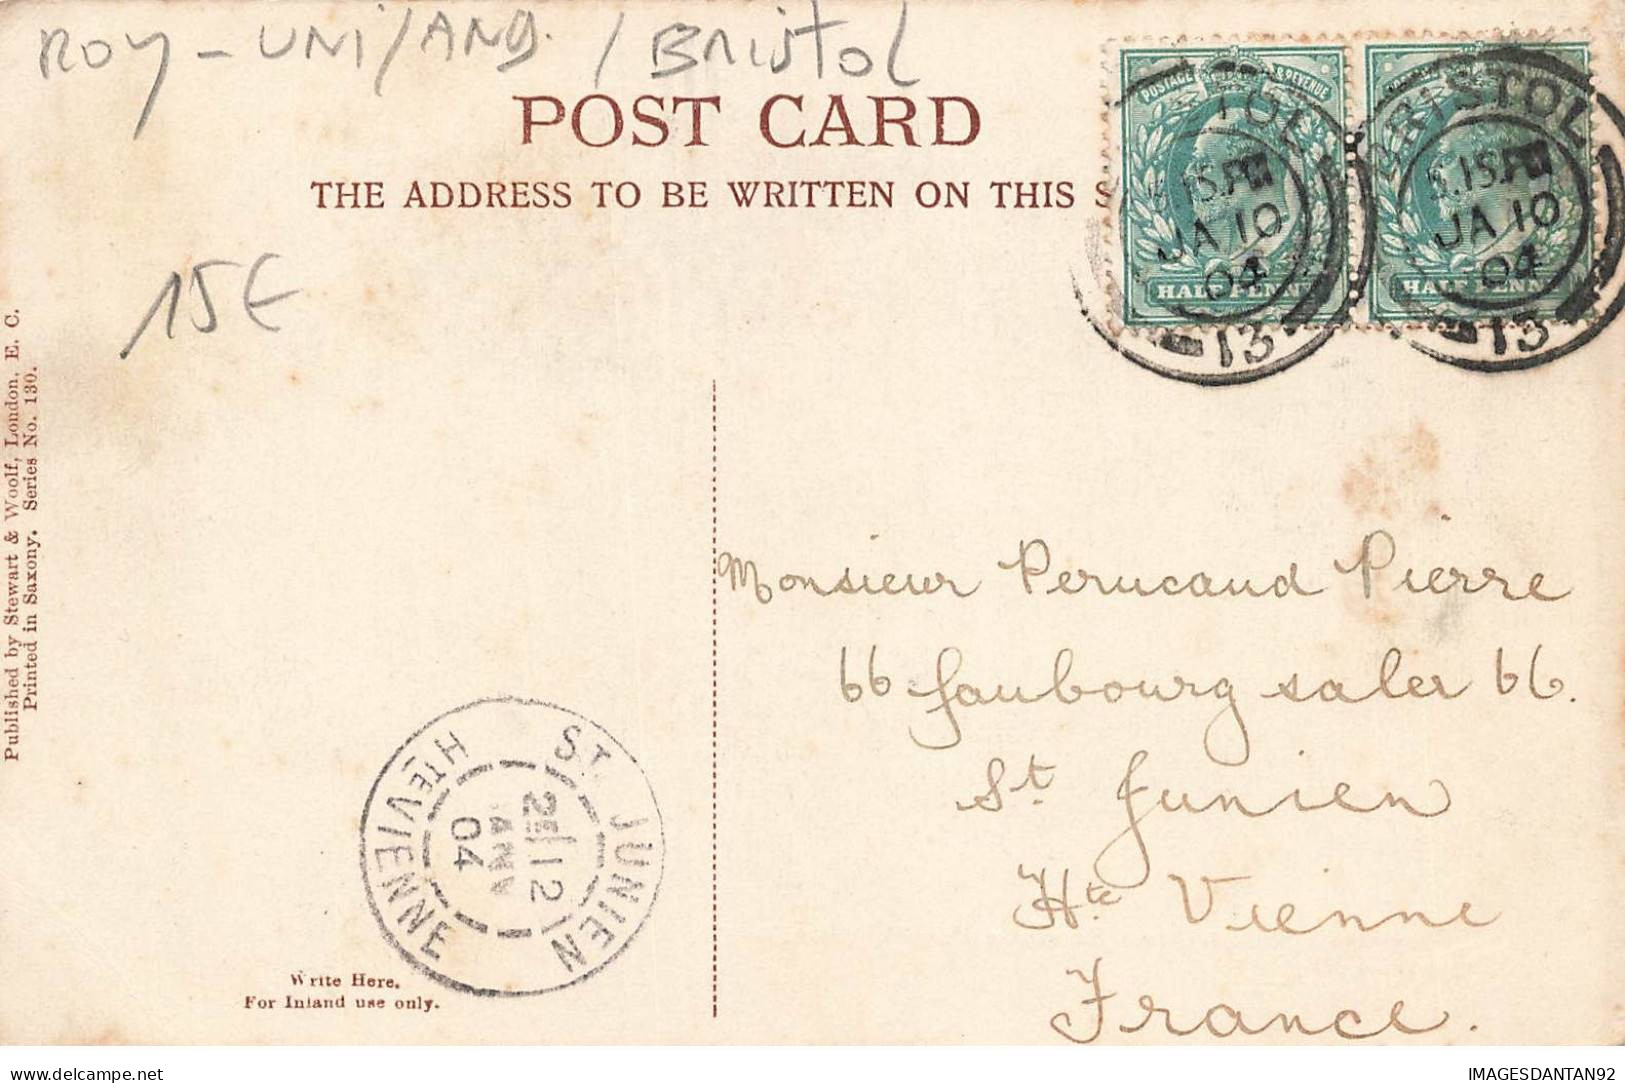 ROY-UNI/ANG. / Bristol
POST CARD
THE ADDRESS TO BE WRITTEN ON THIS S
POSTAGE & REVENUE
HALF PENNY
TOL
.15.P
JA 10
04
13
HALF PENNY
BRISTOL
.15.P
JA 10
04
13
15€
Published by Stewart & Woolf, London, E. C.
Printed in Saxony. Series No. 130.
Monsieur Perucaud Pierre
66 faubourg saler 66.
St Junien
Hte Vienne
France.
ST JUNIEN
HTE VIENNE
2E 12
JANV
04
Write Here.
For Inland use only.
delcampe.net
IMAGESDANTAN92